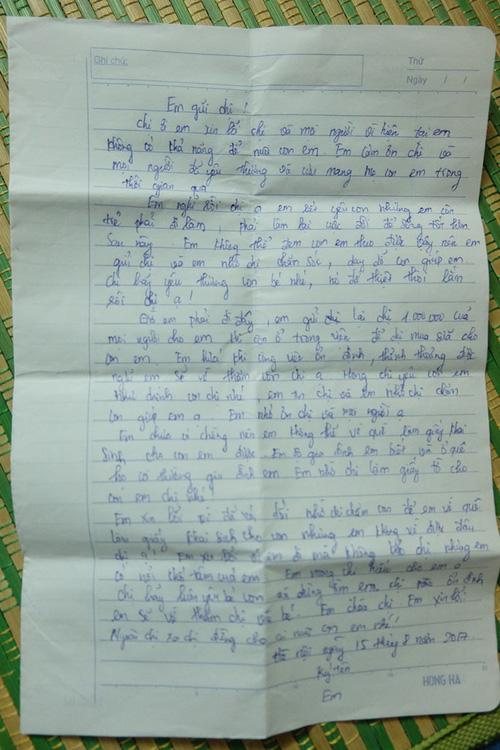 Ghi chú:
Thứ
Ngày / /
Em gửi chị!
Chị ơi em xin lỗi chị và mọi người vì hiện tại em
không có khả năng để nuôi con em. Em cảm ơn chị và
mọi người đã yêu thương và cưu mang mẹ con em trong
thời gian qua
Em nghĩ rồi chị ạ em rất yêu con nhưng em còn
trẻ phải đi làm, phải làm lại cuộc đời để sống tốt hơn
sau này. Em không thể đem con em theo được nên em
gửi chị và em nhờ chị chăm sóc, dạy dỗ con giúp em.
Chị hãy yêu thương con bé nhé, nó đã thiệt thòi lắm
rồi chị ạ!
Giờ em phải đi đây, em gửi lại chị 1.000.000 của
mọi người cho em khi em ở trong viện để chị mua sữa cho
con em. Em khi công việc ổn định, thỉnh thoảng được
nghỉ em sẽ về thăm con chị ạ. Mong chị yêu con em
như chính con chị nhé, em tin chị và em nhờ chị chăm
con giúp em ạ. Em nhớ ơn chị và mọi người ạ
Em chưa có chồng nên em không thể về quê làm giấy khai
sinh cho con em được. gia đình em biết và ở quê
họ gia đình em. Em nhờ chị làm giấy tờ cho
con em chị nhé!
Em xin lỗi vì đã nói dối nhờ chị chăm con để em về quê
làm giấy khai sinh cho con nhưng em không về được đâu
chị ạ! Em xin lỗi vì em đi mà không báo chị nhưng em
có nỗi khổ tâm của em. Em mong chị hiểu cho em ạ
chị hãy em ổn định
em sẽ về thăm chị và bé. Em chào chị. Em xin lỗi.
Ngoài chị ra chị đừng cho ai nuôi con em nhé!
Hà Nội ngày 15 tháng 8 năm 2017
Ký tên
Em
HONG HA